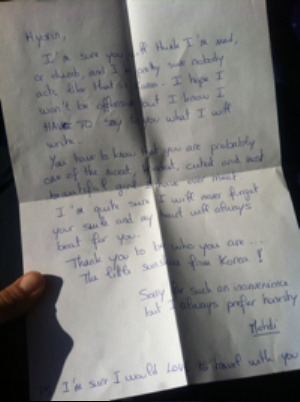 Hyorin,
I'm sure you will think I'm mad,
or dumb, and I'm pretty sure nobody
acts like that anymore. I hope I
won't be offensive but I know I
HAVE TO say to you what I will
write.
You have to know that you are probably
one of the sweet, cutest and most
beautiful girl I have ever meet.
I'm quite sure I will never forget
your smile and my heart will always
beat for you.
Thank you to be who you are ...
The little sunshine from Korea !
Sorry for such an inconvenience
but I always prefer honesty
Mehdi
I'm sure I would Love to travel with you